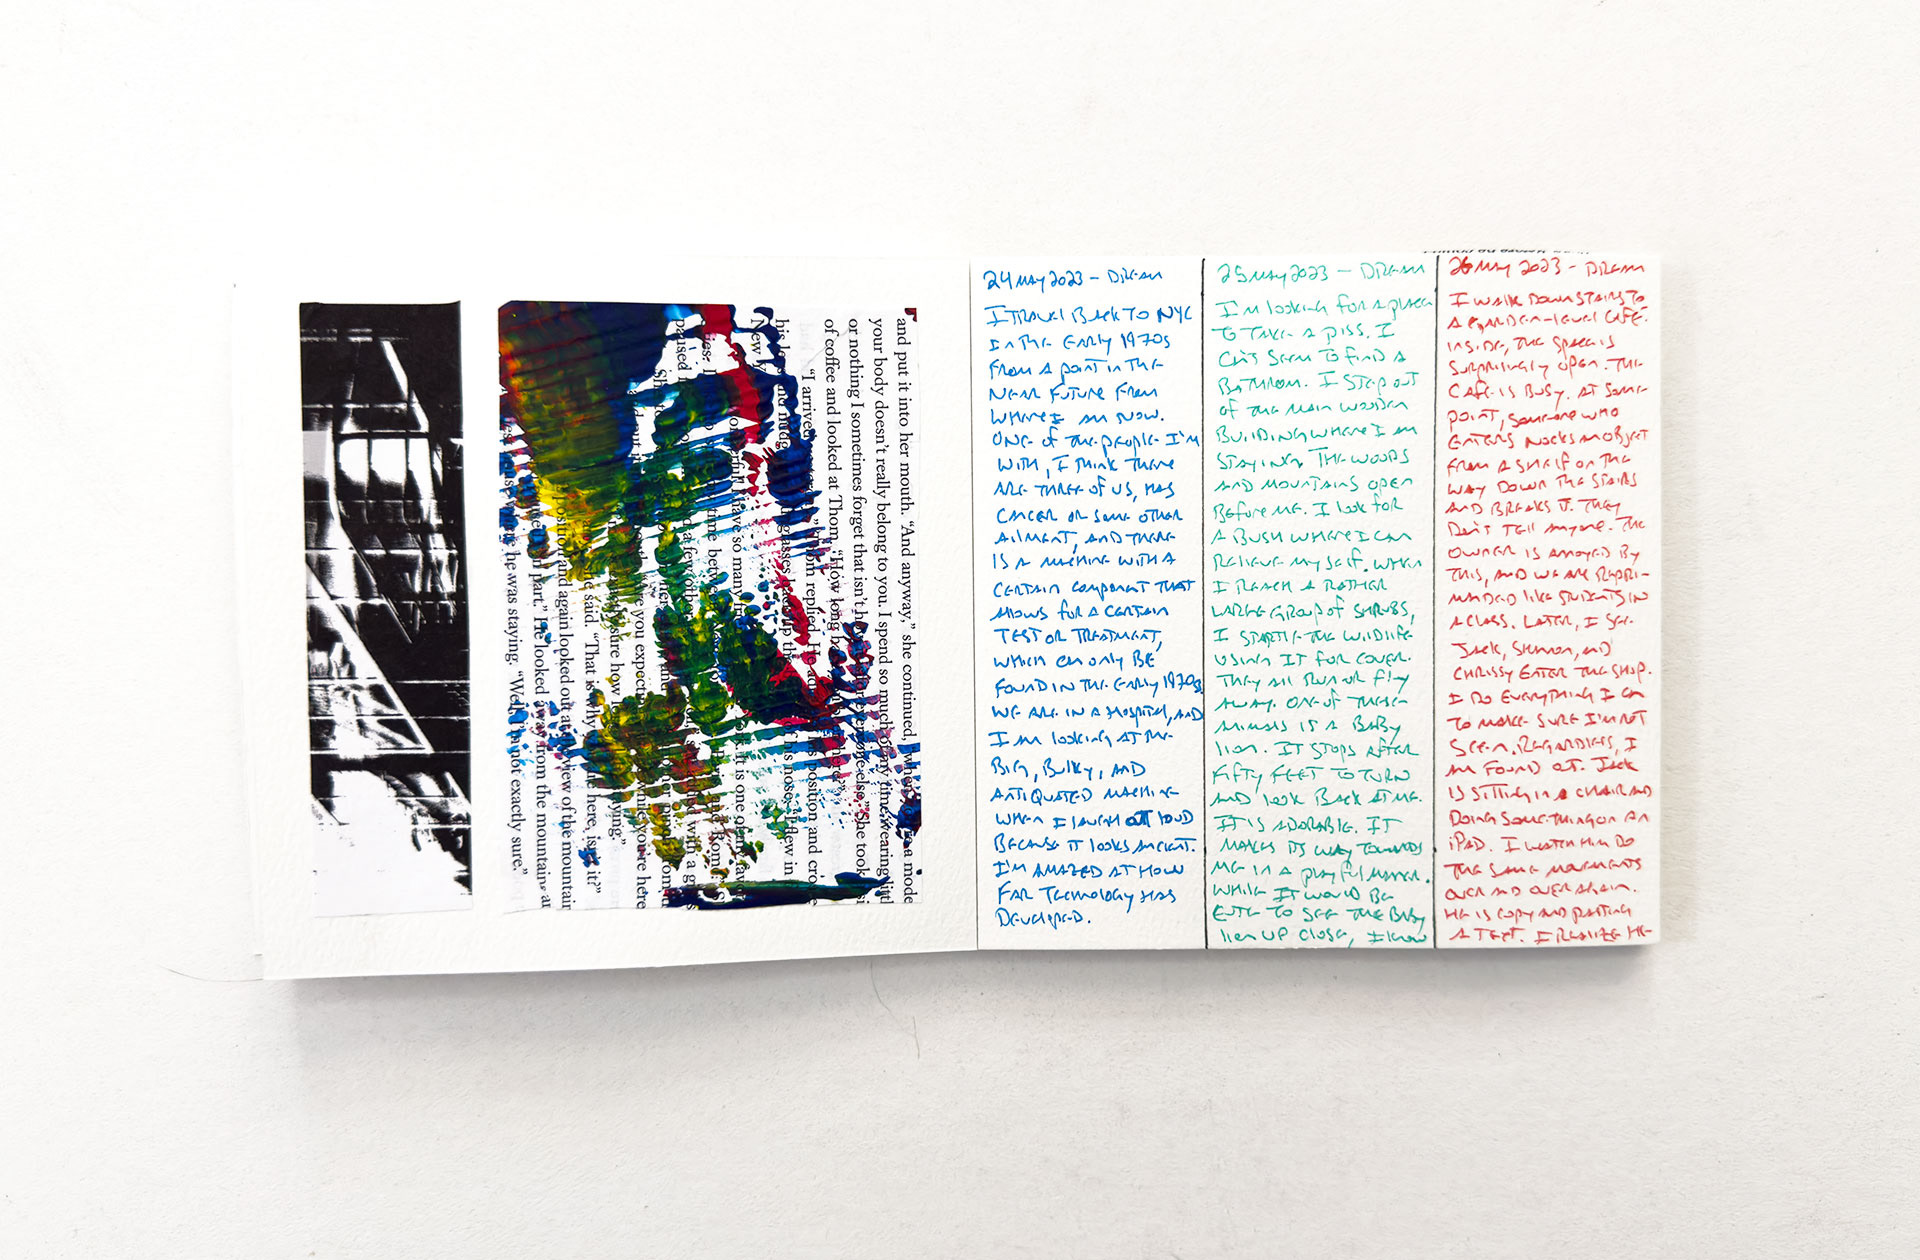 and put it into her mouth. “And anyway,” she continued, a mode
your body doesn’t really belong to you. I spend so much of my time wearing litt
or nothing I sometimes forget that isn’t everyone else.” She took si
of coffee and looked at Thom. “How long
“I arrived Thom replied. He position and cro
his glasses up of his nose. “I flew in
New
have so many It is one of my favor
time between and Rome.” S
paused a few with a g
you expect while you’re here
sure how
he said. “That is why here, isn’t it?”
position and again looked out at view of the mountain
part.” He looked away from the mountains a
he was staying. “Well, I’m not exactly sure.”
24 MAY 2023 – DREAM
I TRAVEL BACK TO NYC
IN THE EARLY 1970s
FROM A POINT IN THE
NEAR FUTURE FROM
WHERE I AM NOW.
ONE OF THE PEOPLE I'M
WITH, I THINK THERE
ARE THREE OF US, HAS
CANCER OR SOME OTHER
AILMENT, AND THERE
IS A MACHINE WITH A
CERTAIN COMPONENT THAT
ALLOWS FOR A CERTAIN
TEST OR TREATMENT,
WHICH CAN ONLY BE
FOUND IN THE EARLY 1970s.
WE ARE IN A HOSPITAL, AND
I AM LOOKING AT THE
BIG, BULKY, AND
ANTIQUATED MACHINE
WHEN I LAUGH OUT LOUD
BECAUSE IT LOOKS ANCIENT.
I'M AMAZED AT HOW
FAR TECHNOLOGY HAS
DEVELOPED.
25 MAY 2023 – DREAM
I'M LOOKING FOR A PLACE
TO TAKE A PISS. I
CAN'T SEEM TO FIND A
BATHROOM. I STEP OUT
OF THE MAIN WOODEN
BUILDING WHERE I AM
STAYING. THE WOODS
AND MOUNTAINS OPEN
BEFORE ME. I LOOK FOR
A BUSH WHERE I CAN
RELIEVE MYSELF. WHEN
I REACH A RATHER
LARGE GROUP OF SHRUBS,
I STARTLE THE WILDLIFE
USING IT FOR COVER.
THEY ALL RUN OR FLY
AWAY. ONE OF THESE
ANIMALS IS A BABY
LION. IT STOPS AFTER
FIFTY FEET TO TURN
AND LOOK BACK AT ME.
IT IS ADORABLE. IT
MAKES ITS WAY TOWARDS
ME IN A PLAYFUL MANNER.
WHILE IT WOULD BE
CUTE TO SEE THE BABY
LION UP CLOSE, I KNOW
26 MAY 2023 – DREAM
I WALK DOWNSTAIRS TO
A GARDEN-LEVEL CAFÉ.
INSIDE, THE SPACE IS
SURPRISINGLY OPEN. THE
CAFE IS BUSY. AT SOME
POINT, SOMEONE WHO
ENTERS KNOCKS AN OBJECT
FROM A SHELF ON THE
WAY DOWN THE STAIRS
AND BREAKS IT. THEY
DON'T TELL ANYONE. THE
OWNER IS ANNOYED BY
THIS, AND WE ARE REPRI-
MANDED LIKE STUDENTS IN
A CLASS. LATER, I SEE
JACK, SHANNON, AND
CHRISSY ENTER THE SHOP.
I DO EVERYTHING I CAN
TO MAKE SURE I'M NOT
SEEN. REGARDLESS, I
AM FOUND OUT. JACK
IS SITTING IN A CHAIR AND
DOING SOMETHING ON AN
iPAD. I WATCH HIM DO
THE SAME MOVEMENTS
OVER AND OVER AGAIN.
HE IS COPY AND PASTING
A TEXT. I REALIZE HE